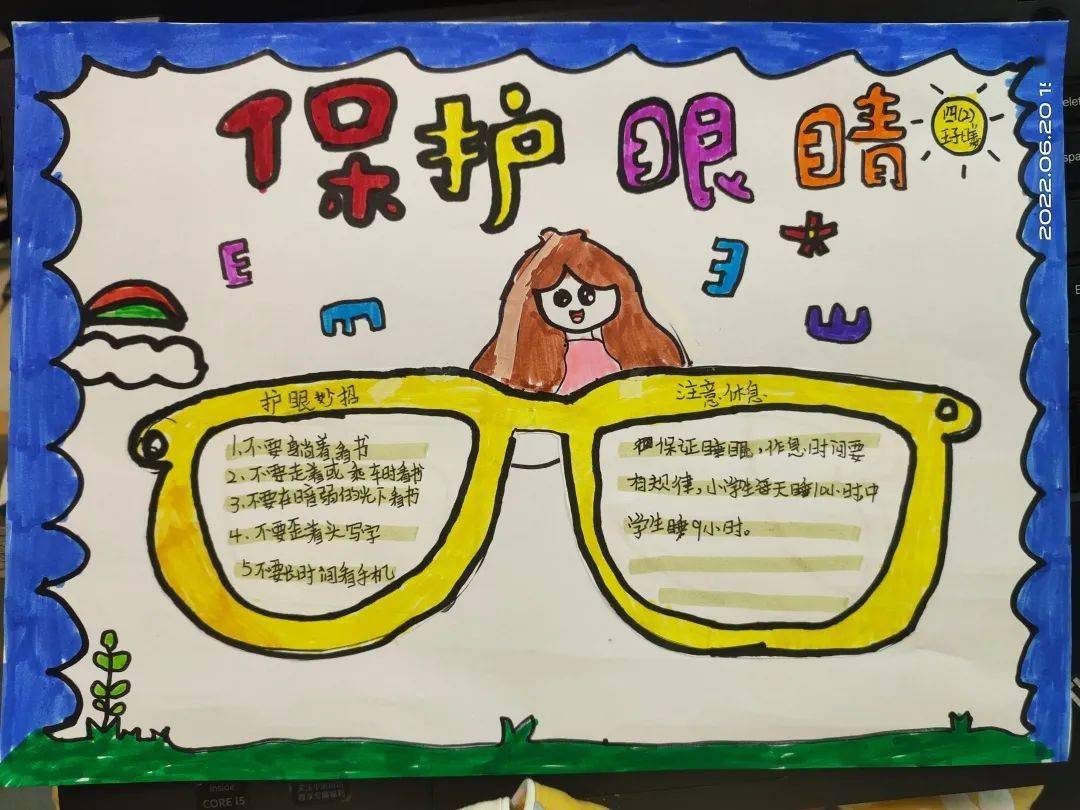 保护眼睛
四(2)
E
E
E
E
护眼妙招
1.不要躺着看书
2.不要走着或乘车时看书
3.不要在暗弱的光下看书
4.不要歪着头写字
5不要长时间看手机
注意休息
保证睡眠,作息时间要
有规律,小学生每天睡10小时中
学生睡9小时。
2022.06.20 15
inside
CORE i5